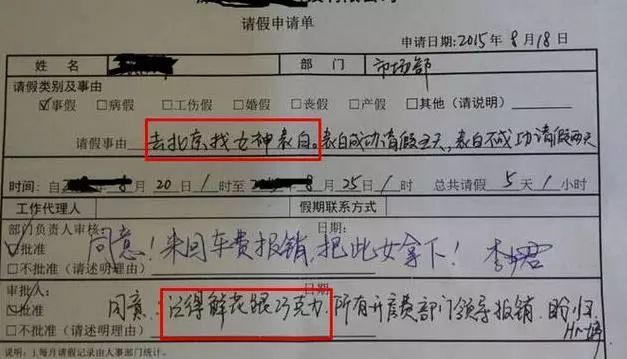 有限公司
请假申请单
申请日期:2015年8月18日
姓名 部门 市场部
请假类别及事由
☑事假 □病假 □工伤假 □婚假 □丧假 □产假 □其他（请说明）
请假事由 去北京找女神表白。表白成功请假五天，表白不成功请假两天
时间：自 8月20日1时至 8月25日1时 总共请假5天1小时
工作代理人 假期联系方式
部门负责人审核: 日期:
☑批准 同意！来回车费报销，把此女拿下！
□不批准（请述明理由）
审批人: 日期
☑批准 同意：记得鲜花跟巧克力，所有开房费部门领导报销，盼归
□不批准（请述明理由） Hr
说明：1.每月请假记录由人事部门统计。